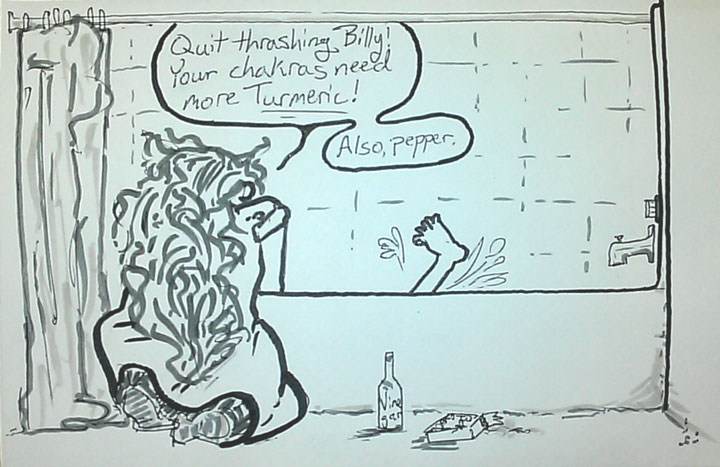 Quit thrashing, Billy!
Your chakras need
more Turmeric!
Also, pepper.
Vine
gar